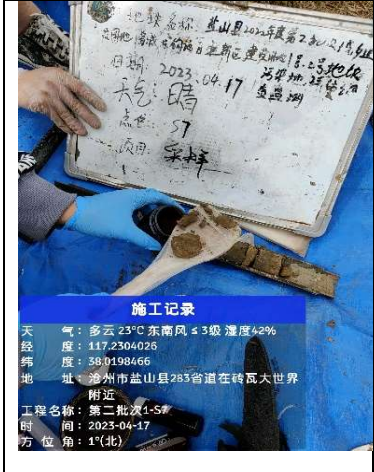 地块名称：盐山县2022年度第2批次1号
日期：2023.04.17
天气：晴
点位：S7
项目：采样
施工记录
天气：多云 23℃ 东南风 ≤ 3级 湿度42%
经度：117.2304026
纬度：38.0198466
地址：沧州市盐山县283省道在砖瓦大世界
附近
工程名称：第二批次1-S7
时间：2023-04-17
方位角：1°(北)